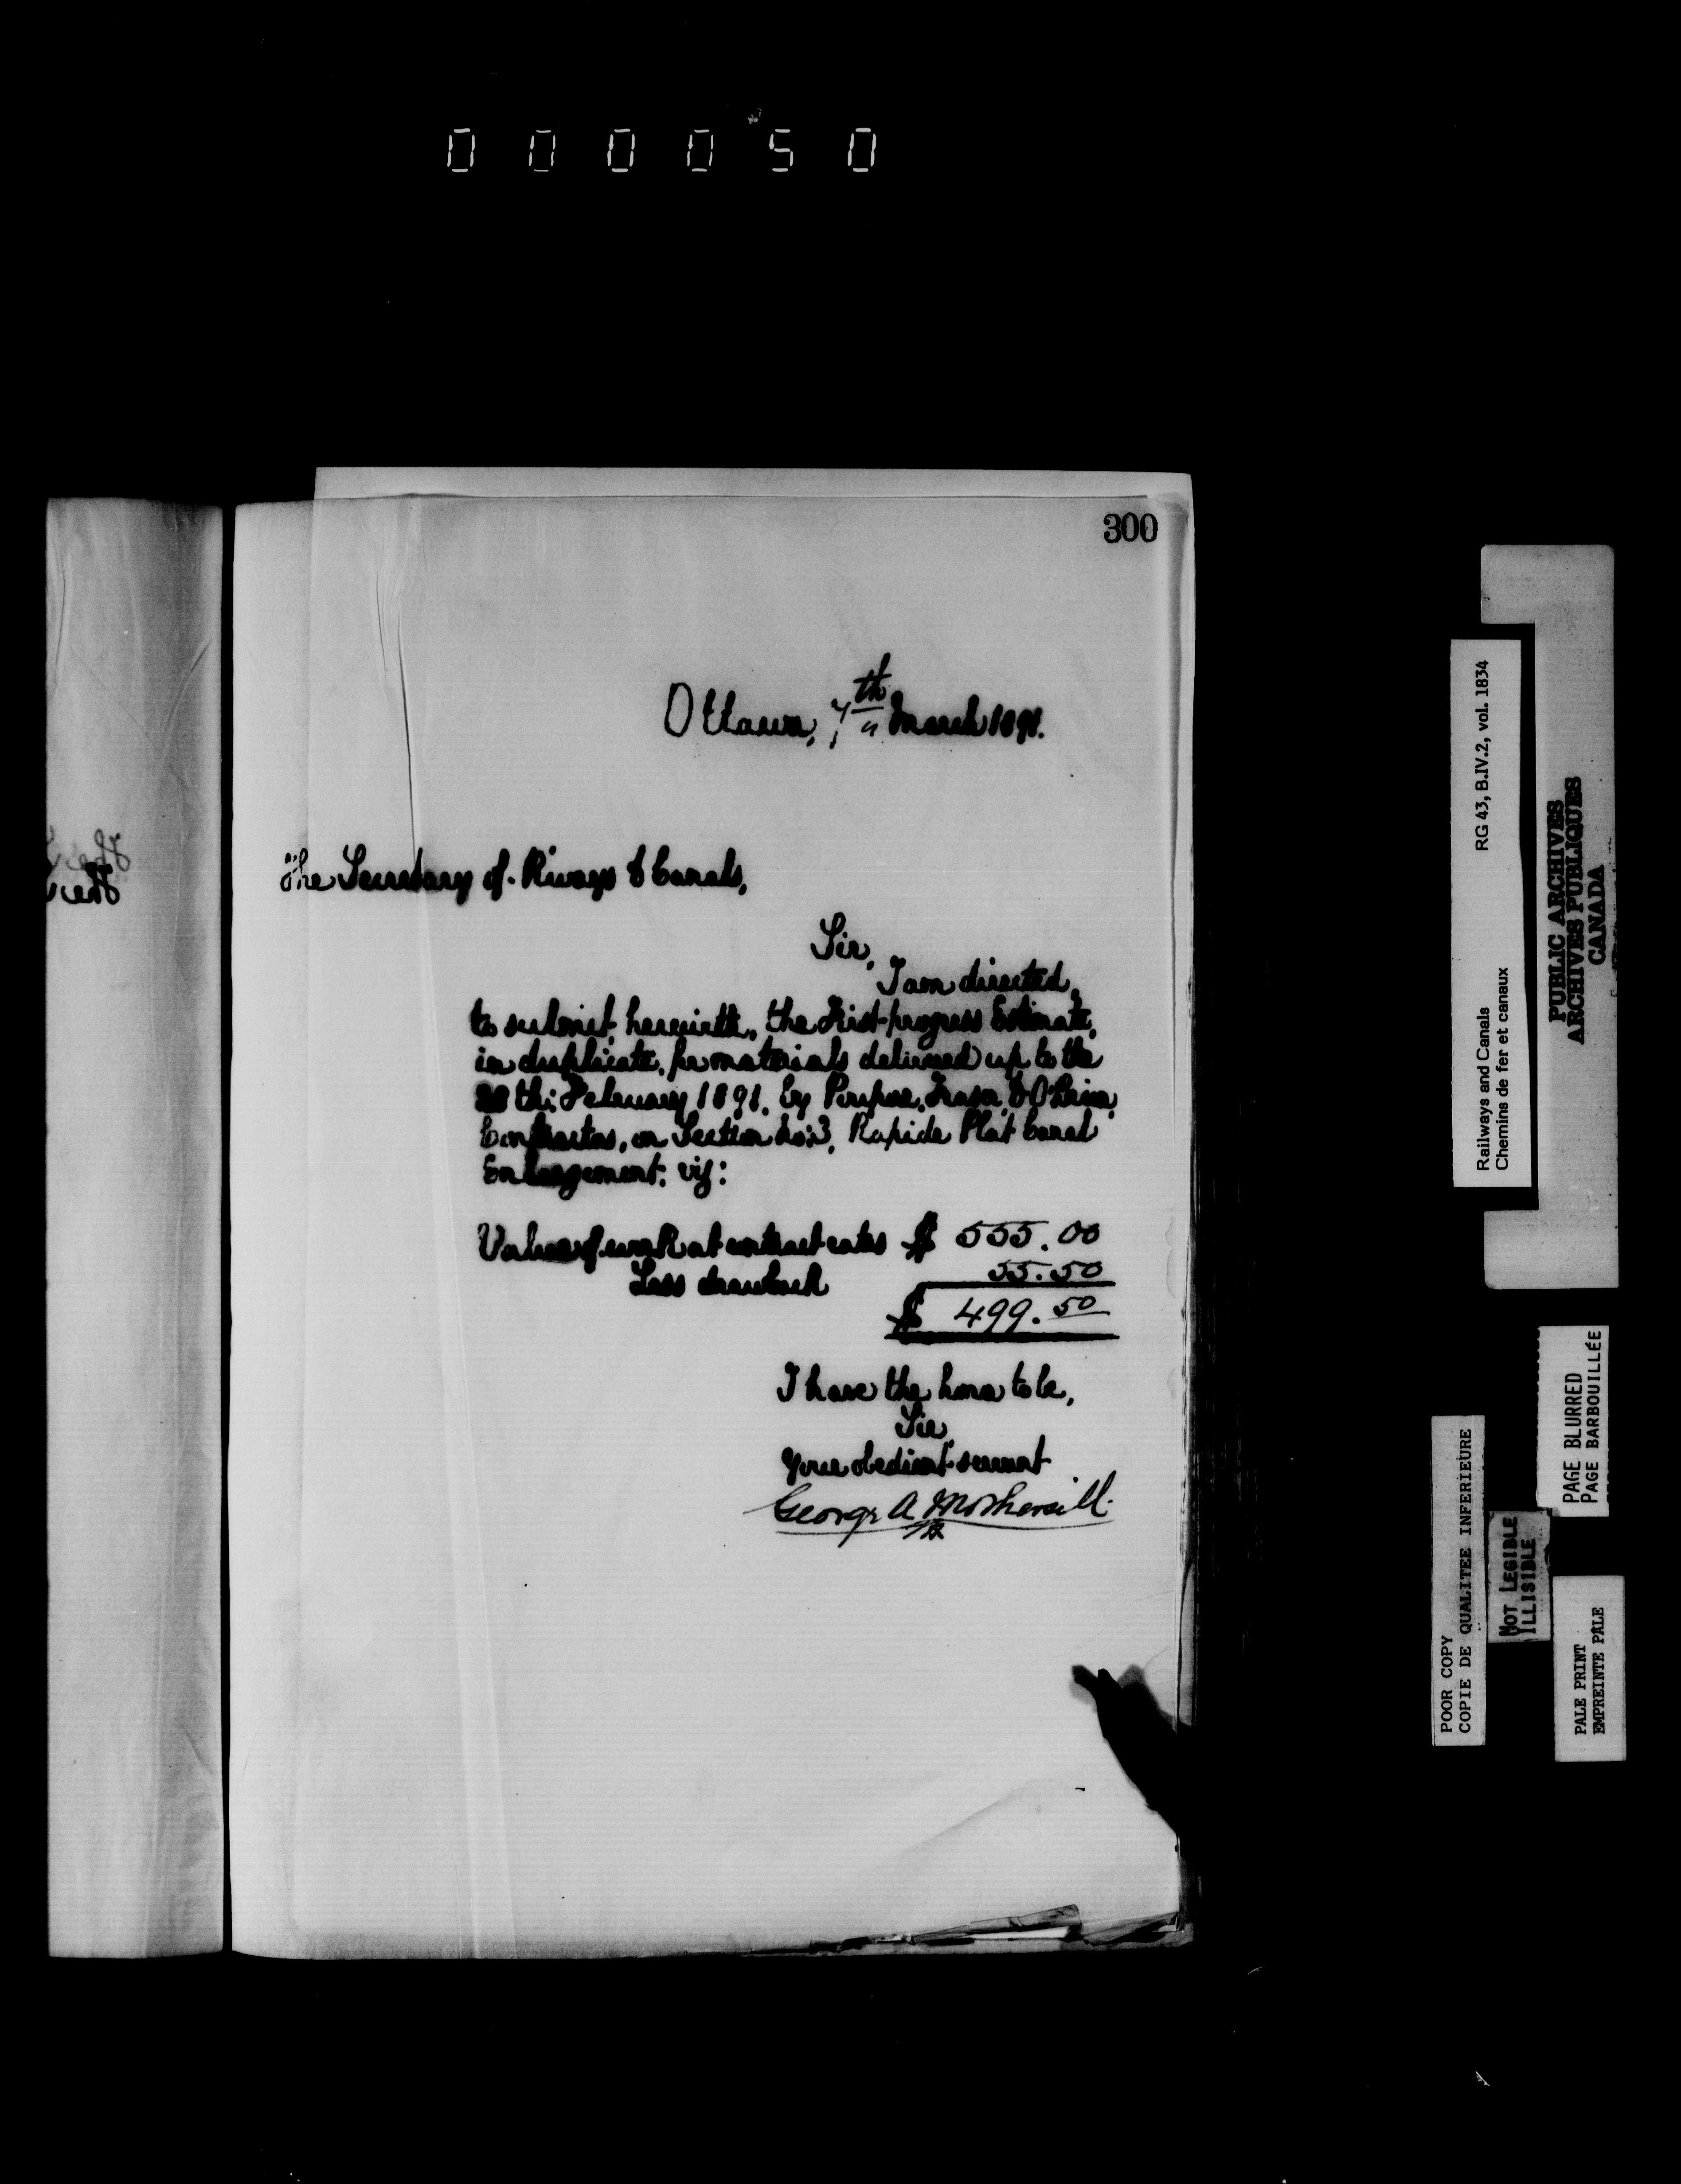 000050
300
Ottawa, 7th March 1891.
The Secretary of Rways & Canals,
Sir,
I am directed,
to submit, herewith, the First progress Estimate,
in duplicate, for materials delivered up to the
28th: February 1891, by Poupore, Fraser & O'Brien,
Contractors, on Section No: 3, Rapide Plat Canal
Enlargement: viz:
Value of work at contract rates $ 555.00
Less drawback 55.50
$ 499.50
I have the honor to be,
Sir,
Your obedient servant
George A Mothersill.
RG 43, B.IV.2, vol. 1834
Railways and Canals
Chemins de fer et canaux
PUBLIC ARCHIVES
ARCHIVES PUBLIQUES
CANADA
PAGE BLURRED
PAGE BARBOUILLÉE
POOR COPY
COPIE DE QUALITEE INFERIEURE
NOT LEGIBLE
ILLISIBLE
PALE PRINT
EMPREINTE PÂLE